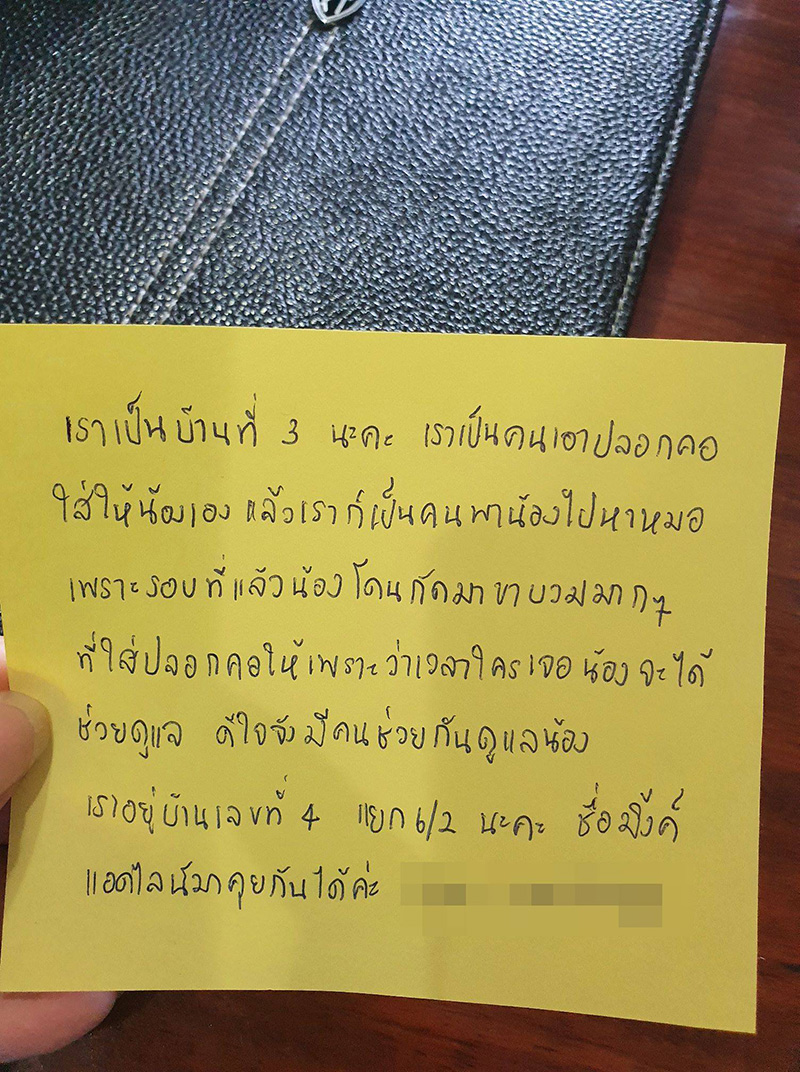 เราเป็นบ้านที่ 3 นะคะ เราเป็นคนเอาปลอกคอ
ใส่ให้น้องเอง แล้วเราก็เป็นคนพาน้องไปหาหมอ
เพราะรอบที่แล้วน้องโดนกัดมาขาบวมมากๆ
ที่ใส่ปลอกคอให้เพราะว่าเวลาใครเจอน้องจะได้
ช่วยดูแล ดีใจจังมีคนช่วยกันดูแลน้อง
เราอยู่บ้านเลขที่ 4 แยก 6/2 นะคะ ชื่อมิ้งค์
แอดไลน์มาคุยกันได้ค่ะ